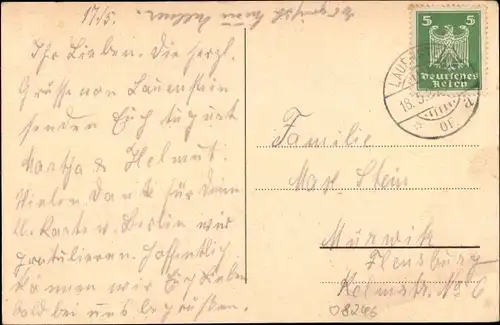 17/5.
Ihr Lieben. Die herzl.
Grüsse von Lauenstein
senden Euch
Martha & Helmut.
Vielen Dank für Deine
lb. Karte v. Berlin wir
gratulieren. Hoffentlich
können wir Euch Lieben
bald bei uns begrüßen.
5 5
Deutsches
Reich
LAUE
18.5.
Familie
Max Stein
Mürwik
Flensburg
Kelmstr. No 6
08246